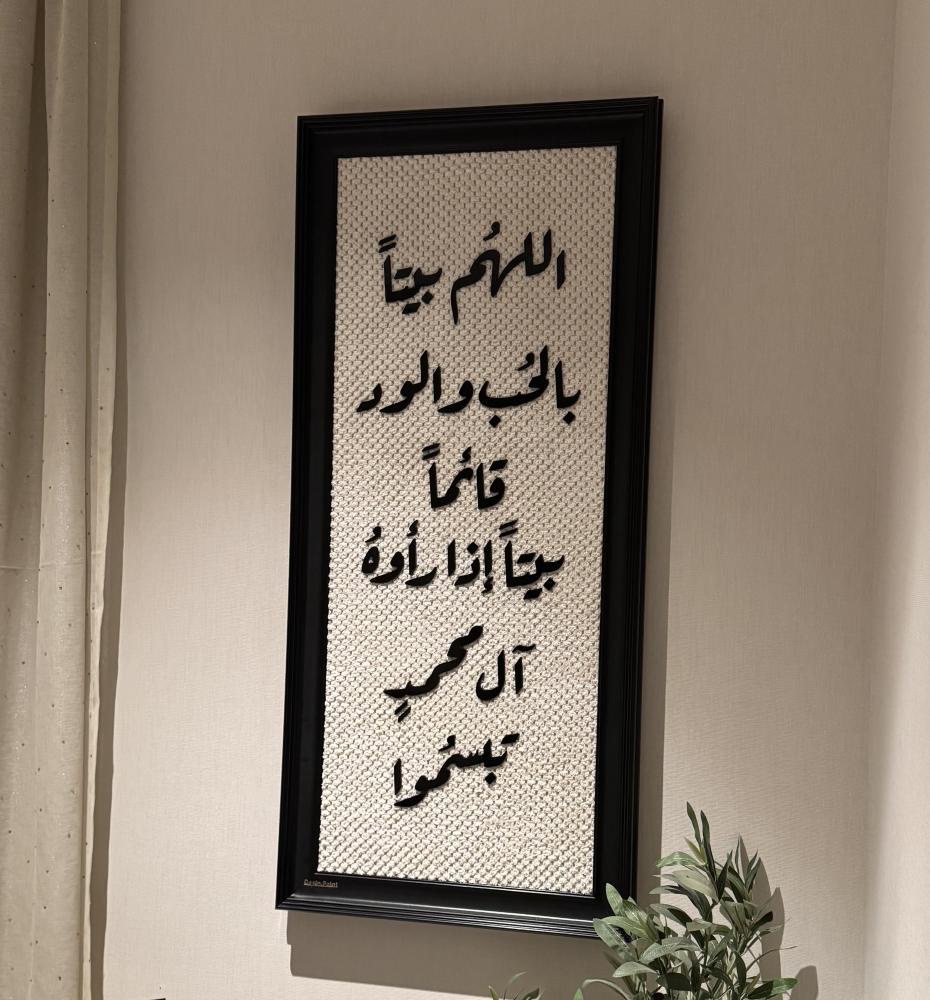 اللهُم بيتاً
بالحُب والود
قائماً
بيتاً إذا رأوهُ
آل محمدٍ
تبسُموا